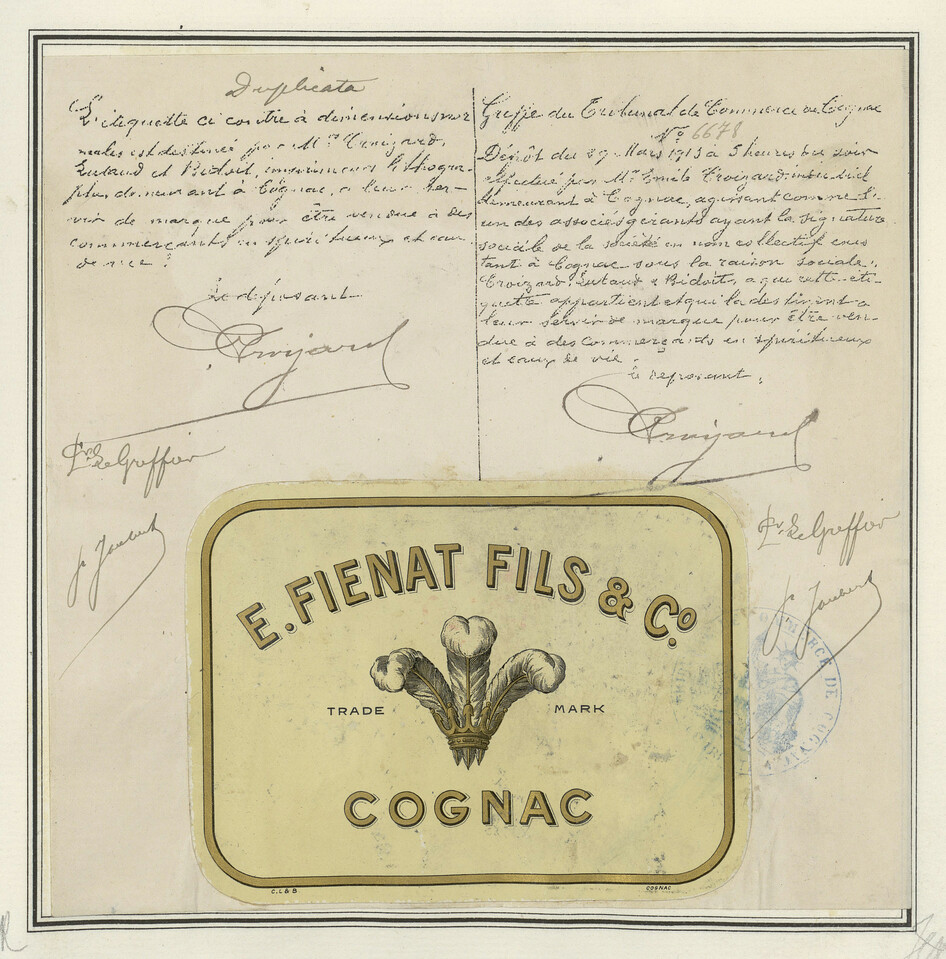 Duplicata
L'étiquette ci contre à dimensions nor
males est destinée par Mrs Croizard,
Lutaud et Bidoit, imprimeurs lithogra-
phes demeurant à Cognac, à leur ser-
vir de marque pour être vendue à des
commerçants en spiritueux et eau
de vie.
Le déposant
Croizard
Pr Le Greffier
J. Joubert
Greffe du Tribunal de Commerce de Cognac
No 6678
Dépôt du 29 Mars 1913 à 5 heures du soir
effectué par Mr Emile Croizard
demeurant à Cognac, agissant comme l'
un des associés gérants ayant la signature
sociale de la société en nom collectif exis
tant à Cognac sous la raison sociale:
Croizard, Lutaud & Bidoit, à qui cette éti-
quette appartient et qui la destinent à
leur servir de marque pour être ven-
due à des commerçants en spiritueux
et eaux de vie.
le déposant,
Croizard
Pr Le Greffier
J. Joubert
E. FIENAT FILS & Co
TRADE MARK
COGNAC
C.L & B
COGNAC
COMMERCE DE COGNAC